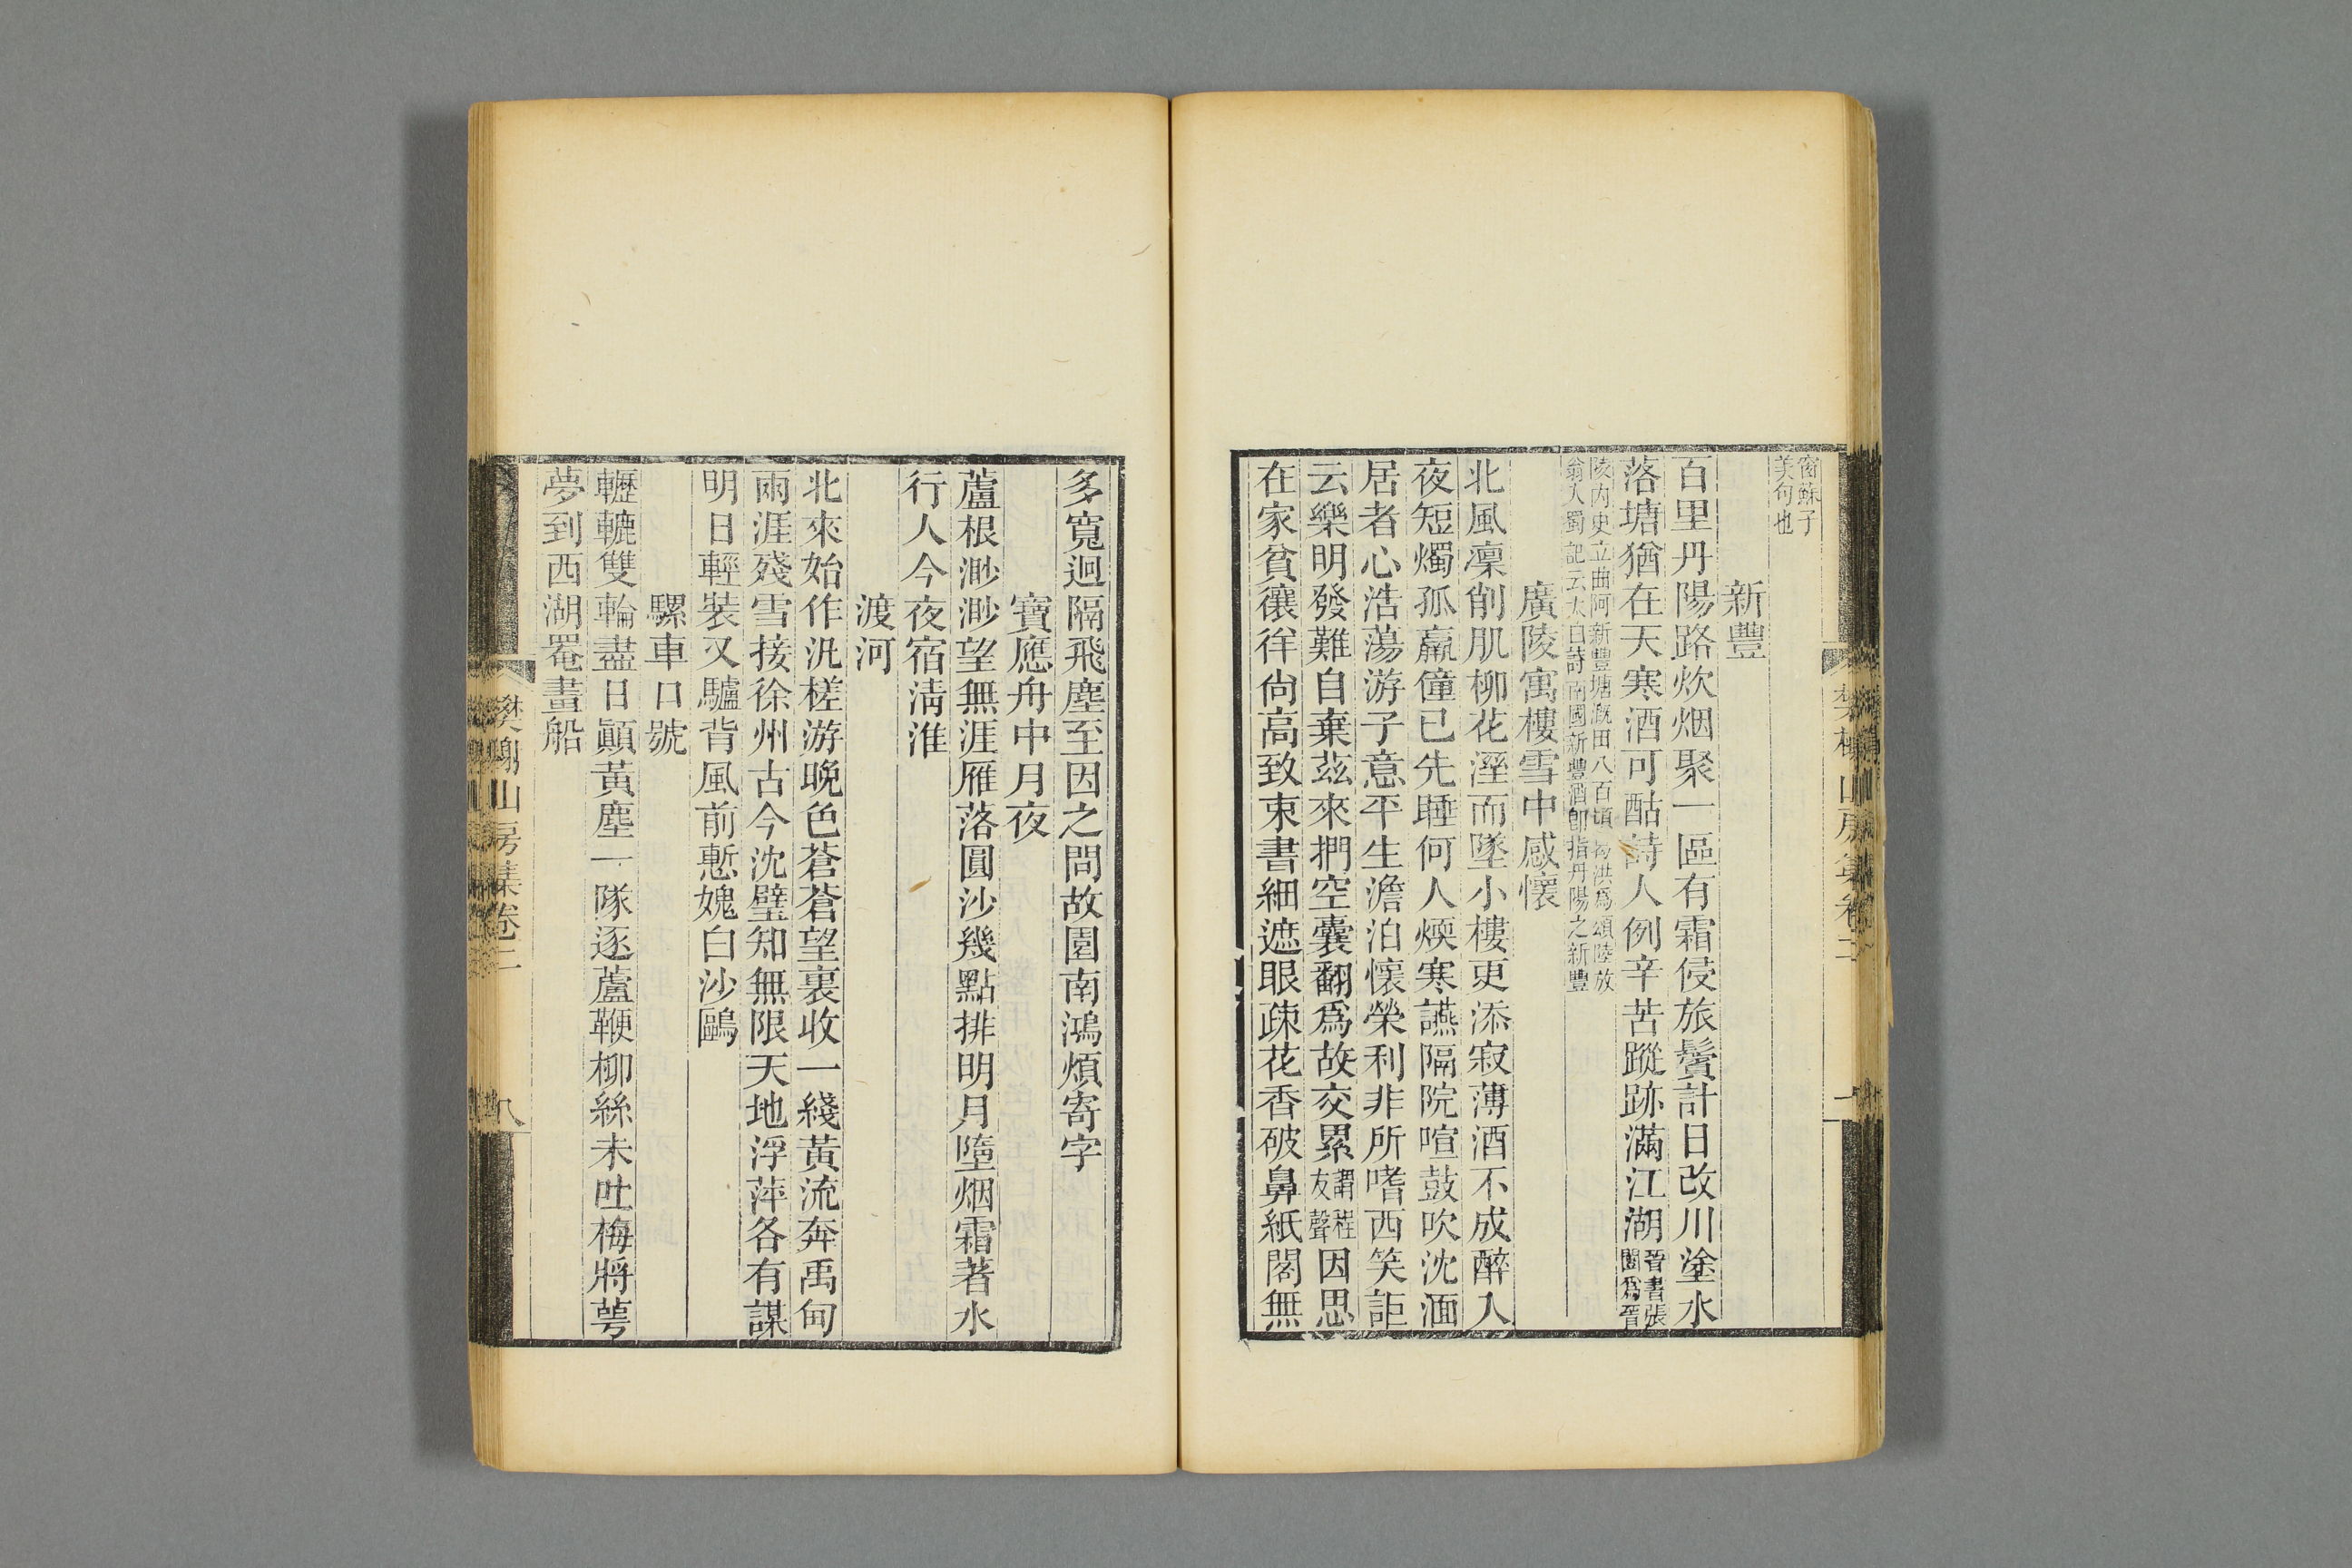 窗蘇子
美句也
新豐
百里丹陽路炊烟聚一區有霜侵旅鬢計日改川塗水
落塘猶在天寒酒可酤詩人例辛苦蹤跡滿江湖晉書張闓爲晉
陵內史立曲阿新豐塘漑田八百頃 葛洪爲頌陸放
翁入蜀記云太白詩南國新豐酒卽指丹陽之新豐
廣陵寓樓雪中感懷
北風凜削肌柳花溼而墜小樓更添寂薄酒不成醉入
夜短燭孤羸僮已先睡何人煗寒讌隔院喧鼓吹沈湎
居者心浩蕩游子意平生澹泊懷榮利非所嗜西笑詎
云樂明發難自棄茲來捫空囊翻爲故交累謂程友聲因思
在家貧儴徉尙高致束書細遮眼疎花香破鼻紙閣無
樊榭山房集卷二
多寬迥隔飛塵至因之問故園南鴻煩寄字
寶應舟中月夜
蘆根渺渺望無涯雁落圓沙幾點排明月墮烟霜著水
行人今夜宿淸淮
渡河
北來始作汎槎游晚色蒼蒼望裏收一綫黃流奔禹甸
兩涯殘雪接徐州古今沈璧知無限天地浮萍各有謀
明日輕裝又驢背風前慙媿白沙鷗
騾車口號
轣轆雙輪盡日顚黃塵一隊逐蘆鞭柳絲未吐梅將萼
夢到西湖罨畫船
樊榭山房集卷二
八